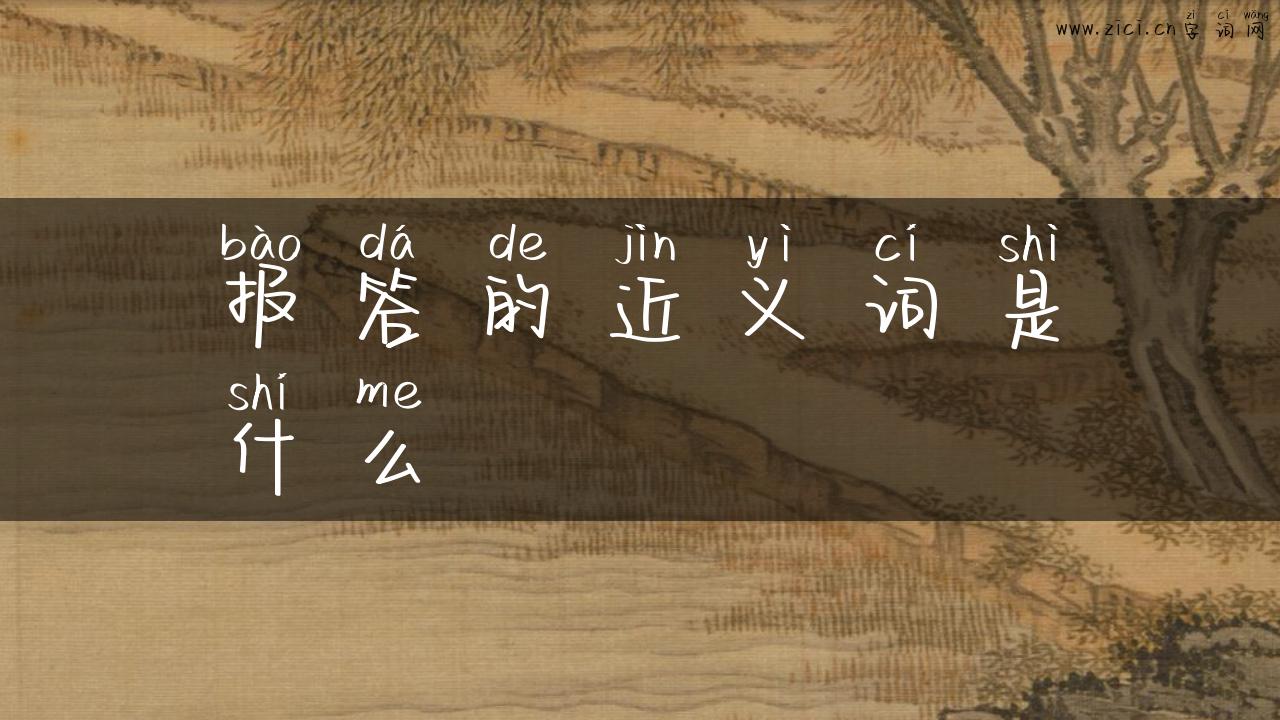 zì cí wǎng
www.zici.cn字词网
bào dá de jìn yì cí shì
报答的近义词是
shí me
什么